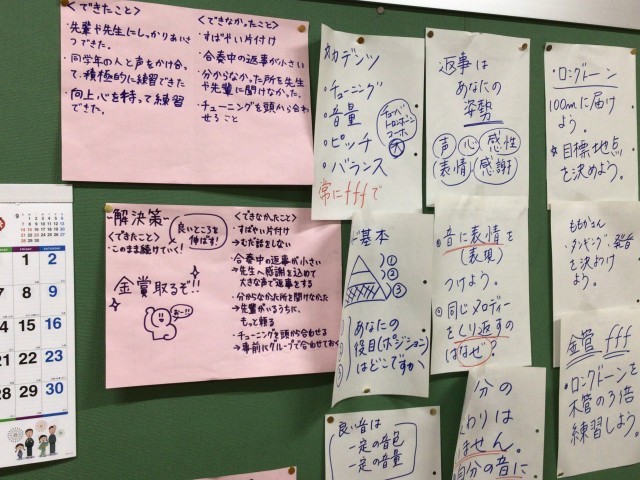 <できたこと>
・先輩や先生にしっかりあいさつできた。
・同学年の人と声をかけ合って、積極的に練習できた
・向上心を持って練習できた。
<できなかったこと>
・すばやい片付け
・合奏中の返事が小さい
・分からなかった所を先生や先輩に聞けなかった。
・チューニングを頭から合わせること
-解決策-
良いところを伸ばす!
<できたこと>
・このまま続けていく!
金賞取るぞ!!
おー!!
<できなかったこと>
・すばやい片付け
→むだ話をしない
・合奏中の返事が小さい
→先生へ感謝を込めて
大きな声で返事をする
・分からなかった所を聞けなかった
→先輩がいるうちに、
もっと頼る
・チューニングを頭から合わせる
→事前にグループで合わせておく
カデンツ
・チューニング
・音量
・ピッチ
・バランス
チューバ
トロンボーン
コーホ
大
常にfffで
返事は
あなたの
姿勢
声 心 感性
表情 感謝
・ロングトーン
100mに届け
よう。
☆目標地点
を決めよう。
基本
①
②
③
あなたの
役目(ポジション)
はどこですか
音に表情を
(表現)
つけよう。
同じメロディーを
くり返すの
はなぜ?
タンギング 発音
を決めつけ
よう。
金管 fff
・ロングトーンを
木管の3倍
練習しよう。
良い音は
一定の音色
一定の音量
分の
わりは
ません。
自分の音に
9
1 2
7 8 9
14 15 16
21 22 23
28 29 30